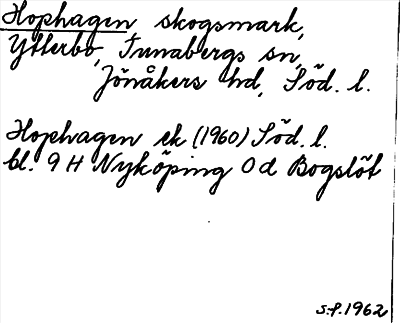 Hophagen, skogsmark,
Ytterbo, Tunabergs sn,
Jönåkers hd, Söd. l.
Hophagen ek (1960) Söd. l.
bl. 9 H Nyköping 0 d Bogslöt
S.P. 1962